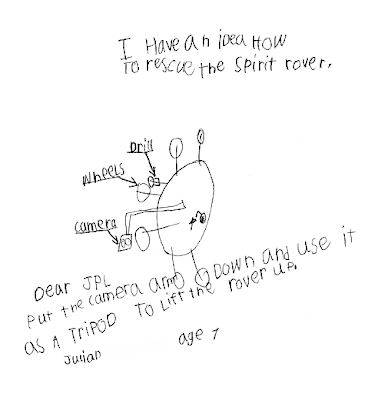 I Have an idea How
To rescue the Spirit rover.
Drill
wheels
camera
Dear JPL
Put the camera arm DOWN and use it
as A TriPOD To Lift the rover up.
Julian age 7